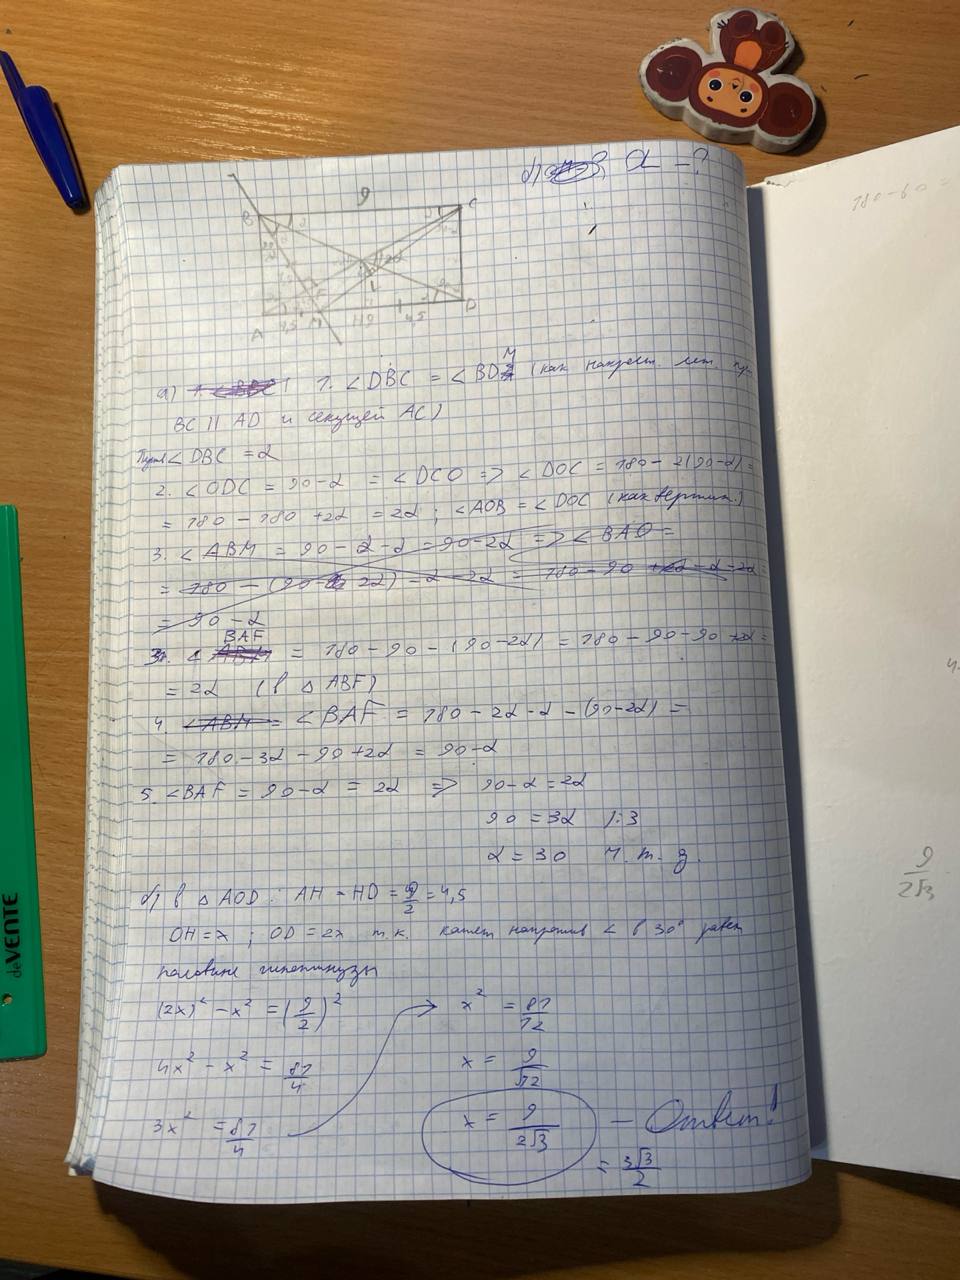 a - ?
9
B
C
A
M
H
D
4,5
9
4,5
а) 1. ∠DBC = ∠BDM (как накрест. леж. при
BC || AD и секущей AC)
Пусть ∠DBC = α
2. ∠ODC = 90-α = ∠DCO => ∠DOC = 180 - 2(90-α) =
= 180 - 180 + 2α = 2α ; ∠AOB = ∠DOC (как вертик.)
3. ∠ABM = 90 - α - α = 90 - 2α => ∠BAO =
= 180 - (90 - 2α) - α - 2α = 180 - 90
= 90 - α
3. ∠BAF = 180 - 90 - (90-2α) = 180 - 90 - 90 + 2α =
= 2α (в △ ABF)
4. ∠ABM = ∠BAF = 180 - 2α - α - (90-2α) =
= 180 - 3α - 90 + 2α = 90 - α
5. ∠BAF = 90-α = 2α => 90-α = 2α
90 = 3α |:3
α = 30 Ч. т. д.
б) в △ AOD: AH = HD = 9/2 = 4,5
OH = x ; OD = 2x т.к. катет напротив ∠ в 30° равен
половине гипотинузы
(2x)² - x² = (9/2)²
4x² - x² = 81/4
3x² = 81/4
x² = 81/12
x = 9/√12
x = 9/2√3 — Ответ!
= 3√3/2
180-60 =
9/2√3
4.
deVENTE